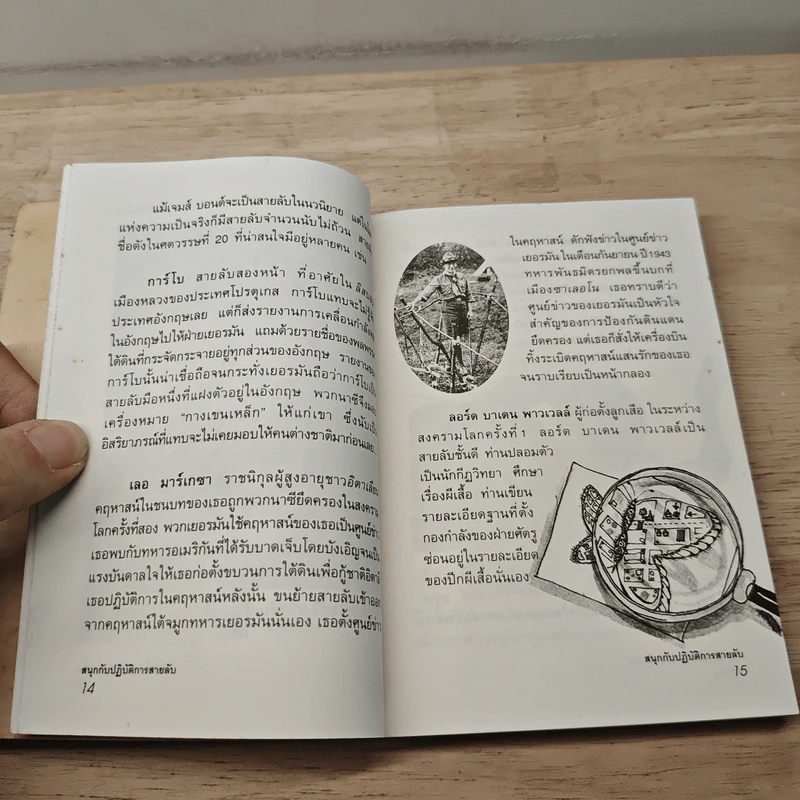 แม้เจมส์ บอนด์จะเป็นสายลับในนวนิยาย แต่ใน
แห่งความเป็นจริงก็มีสายลับจำนวนนับไม่ถ้วน
ชื่อดังในศตวรรษที่ 20 ที่น่าสนใจมีอยู่หลายคน เช่น
การ์โบ สายลับสองหน้า ที่อาศัยใน
เมืองหลวงของประเทศโปรตุเกส การ์โบแทบจะไม่
ประเทศอังกฤษเลย แต่ก็ส่งรายงานการเคลื่อน
ในอังกฤษไปให้ฝ่ายเยอรมัน แถมด้วยรายชื่อของ
ใต้ดินที่กระจัดกระจายอยู่ทุกส่วนของอังกฤษ รายงาน
การ์โบนั้นน่าเชื่อถือจนกระทั่งเยอรมันถือว่าการ์โบเป็น
สายลับมือหนึ่งที่แฝงตัวอยู่ในอังกฤษ พวกนาซีจึง
เครื่องหมาย "กางเขนเหล็ก" ให้แก่เขา ซึ่งนับเป็น
อิสริยาภรณ์ที่แทบจะไม่เคยมอบให้คนต่างชาติมาก่อนเลย
เลอ มาร์เกซา ราชนิกุลผู้สูงอายุชาวอิตาเลียน
คฤหาสน์ในชนบทของเธอถูกพวกนาซียึดครองในสงคราม
โลกครั้งที่สอง พวกเยอรมันใช้คฤหาสน์ของเธอเป็นศูนย์ข่าว
เธอพบกับทหารอเมริกันที่ได้รับบาดเจ็บโดยบังเอิญจนเป็น
แรงบันดาลใจให้เธอก่อตั้งขบวนการใต้ดินเพื่อกู้ชาติอิตาลี
เธอปฏิบัติการในคฤหาสน์หลังนั้น ขนย้ายสายลับเข้าออก
จากคฤหาสน์ใต้จมูกทหารเยอรมันนั่นเอง เธอตั้งศูนย์ข่าว
สนุกกับปฏิบัติการสายลับ
14
ในคฤหาสน์ ดักฟังข่าวในศูนย์ข่าว
เยอรมัน ในเดือนกันยายน ปี 1943
ทหารพันธมิตรยกพลขึ้นบกที่
เมืองซาเลอโน เธอทราบดีว่า
ศูนย์ข่าวของเยอรมันเป็นหัวใจ
สำคัญของการป้องกันดินแดน
ยึดครอง แต่เธอก็สั่งให้เครื่องบิน
ทิ้งระเบิดคฤหาสน์แสนรักของเธอ
จนราบเรียบเป็นหน้ากลอง
ลอร์ด บาเดน พาวเวลล์ ผู้ก่อตั้งลูกเสือ ในระหว่าง
สงครามโลกครั้งที่ 1 ลอร์ด บาเดน พาวเวลล์เป็น
สายลับชั้นดี ท่านปลอมตัว
เป็นนักกีฏวิทยา ศึกษา
เรื่องผีเสื้อ ท่านเขียน
รายละเอียดฐานที่ตั้ง
กองกำลังของฝ่ายศัตรู
ซ่อนอยู่ในรายละเอียด
ของปีกผีเสื้อนั่นเอง
สนุกกับปฏิบัติการสายลับ
15